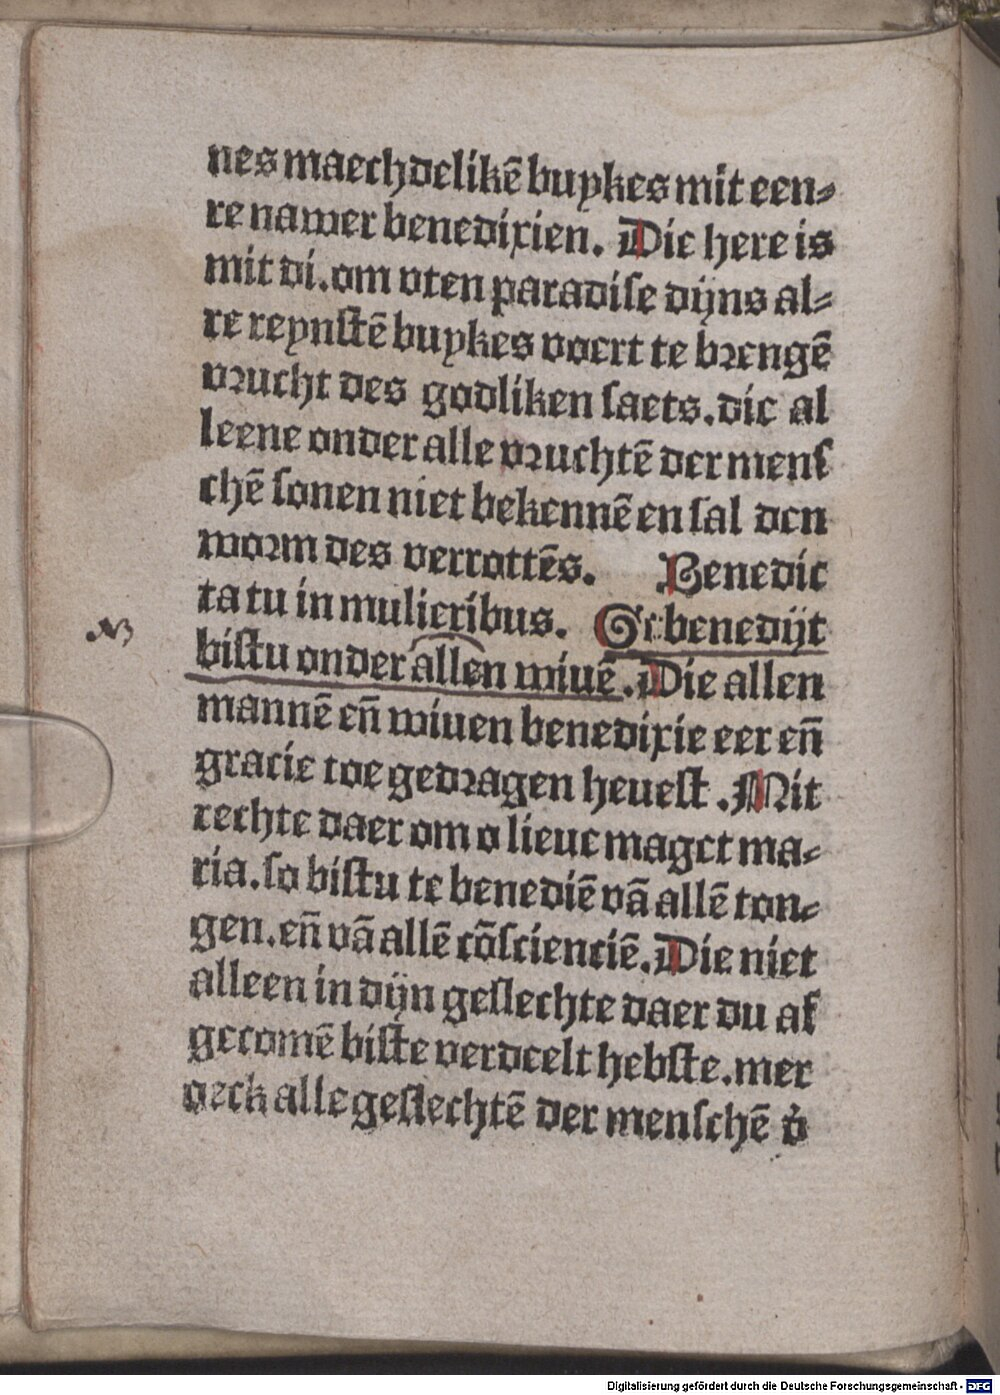 nes maechdelikē buykes mit een⸗
re nawer benedixien. Die here is
mit di. om vten paradise dijns al⸗
re reynstē buykes voert te brengē
vrucht des godliken saets. die al
leene onder alle vruchtē der mens
chē sonen niet bekennē en sal den
worm des verrottēs. Benedic
ta tu in mulieribus. Gebenedijt
NB
bistu onder allen wiuē. Die allen
mannē eñ wiuen benedixie eer eñ
gracie toe gedragen heuest. Mit
rechte daer om o lieue maget ma⸗
ria. so bistu te benediē vā allē ton⸗
gen. eñ vā allē cōsciencië. Die niet
alleen in dijn geslechte daer du af
gecomē biste verdeelt hebste. mer
oeck alle geslechtē der menschē
Digitalisierung gefördert durch die Deutsche Forschungsgemeinschaft - DFG